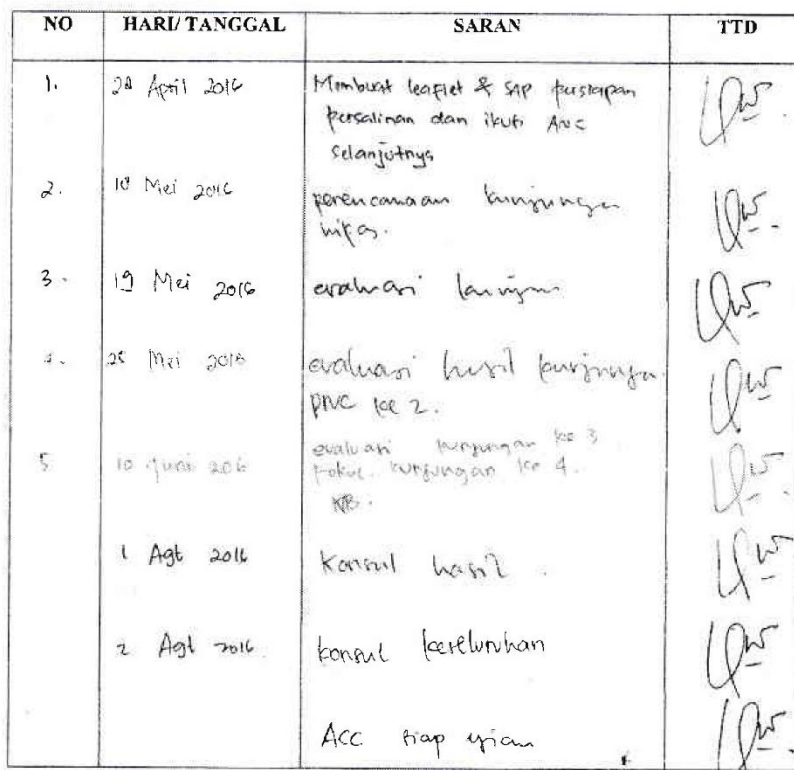 NO HARI/ TANGGAL SARAN TTD
1. 28 April 2016 Membuat leaflet & SAP persiapan
persalinan dan ikuti ANC
selanjutnya
2. 18 Mei 2016 perencanaan kunjungan
nifas.
3. 19 Mei 2016 evaluasi
4. 25 Mei 2016 evaluasi hasil kunjungan
PNC ke 2.
5 10 Juni 2016 evaluasi kunjungan ke 3
Fokus kunjungan ke 4.
KB.
1 Agt 2016 Konsul hasil .
2 Agt 2016 konsul keseluruhan
ACC siap ujian